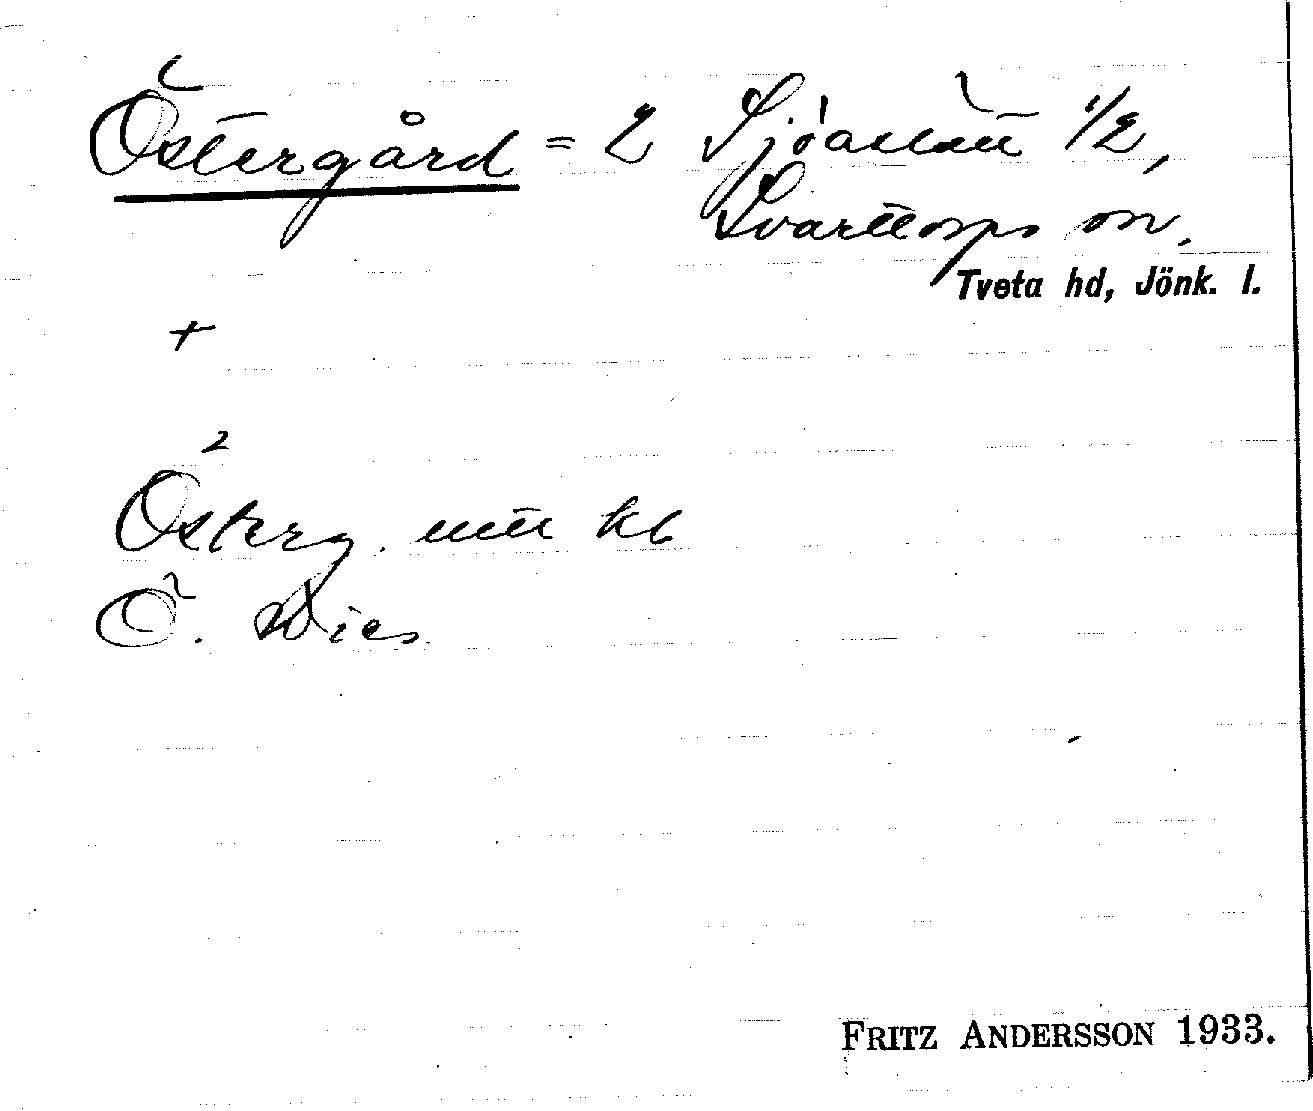 Östergård = 2 Sjöaktatt 1/2,
Svarttorps sn,
Tveta hd, Jönk. l.
+
2
Österg. utt kb
Ö. Wies
FRITZ ANDERSSON 1933.